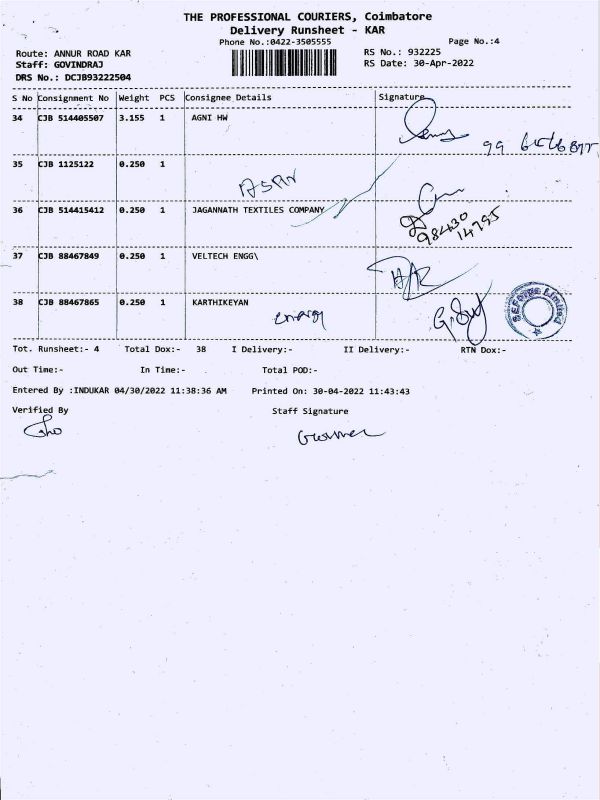 THE PROFESSIONAL COURIERS, Coimbatore
Delivery Runsheet - KAR
Phone No.:0422-3505555
Page No.:4
Route: ANNUR ROAD KAR
RS No.: 932225
Staff: GOVINDRAJ
RS Date: 30-Apr-2022
DRS No.: DCJB93222504
S No Consignment No Weight PCS Consignee Details Signature
34 CJB 514405507 3.155 1 AGNI HW
35 CJB 1125122 0.250 1
36 CJB 514415412 0.250 1 JAGANNATH TEXTILES COMPANY
98430
14795
37 CJB 88467849 0.250 1 VELTECH ENGG\
38 CJB 88467865 0.250 1 KARTHIKEYAN
energy
Tot. Runsheet:- 4 Total Dox:- 38 I Delivery:- II Delivery:- RTN Dox:-
Out Time:- In Time:- Total POD:-
Entered By :INDUKAR 04/30/2022 11:38:36 AM Printed On: 30-04-2022 11:43:43
Verified By Staff Signature